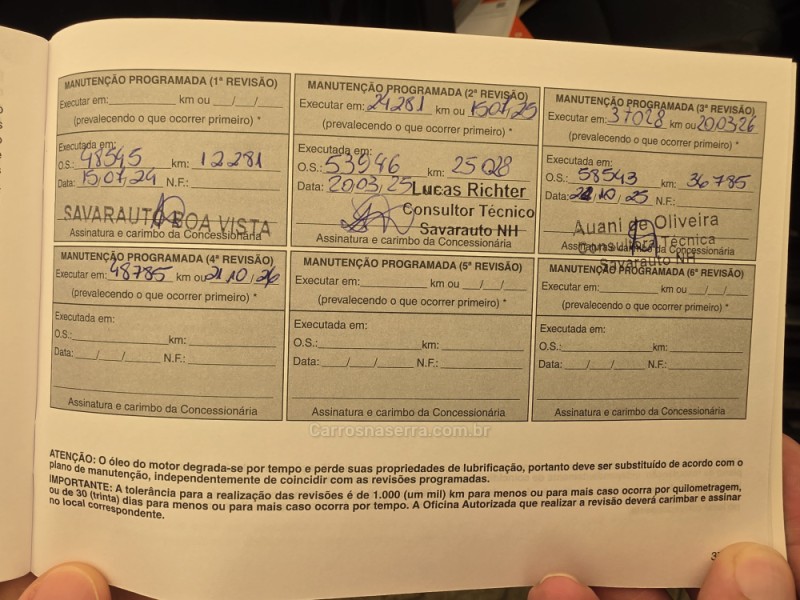 MANUTENÇÃO PROGRAMADA (1ª REVISÃO)
Executar em:____________ km ou ___/___/___
(prevalecendo o que ocorrer primeiro) *
Executada em:
O.S.: 48545 km: 12281
Data: 15/07/24 N.F.:
SAVARAUTO BOA VISTA
Assinatura e carimbo da Concessionária
MANUTENÇÃO PROGRAMADA (2ª REVISÃO)
Executar em: 24281 km ou 15/07/25
(prevalecendo o que ocorrer primeiro) *
Executada em:
O.S.: 53946 km: 25028
Data: 20/03/25
Lucas Richter
Consultor Técnico
Savarauto NH
Assinatura e carimbo da Concessionária
MANUTENÇÃO PROGRAMADA (3ª REVISÃO)
Executar em: 37028 km ou 20/03/26
(prevalecendo o que ocorrer primeiro) *
Executada em:
O.S.: 58543 km: 36785
Data: 21/10/25 N.F.:
Auani de Oliveira
Consultora Técnica
Savarauto NH
Assinatura e carimbo da Concessionária
MANUTENÇÃO PROGRAMADA (4ª REVISÃO)
Executar em: 48785 km ou 21/10/26
(prevalecendo o que ocorrer primeiro) *
Executada em:
O.S.:____________ km:____________
Data: ___/___/___ N.F.:____________
Assinatura e carimbo da Concessionária
MANUTENÇÃO PROGRAMADA (5ª REVISÃO)
Executar em:____________ km ou ___/___/___
(prevalecendo o que ocorrer primeiro) *
Executada em:
O.S.:____________ km:____________
Data: ___/___/___ N.F.:____________
Assinatura e carimbo da Concessionária
MANUTENÇÃO PROGRAMADA (6ª REVISÃO)
Executar em:____________ km ou ___/___/___
(prevalecendo o que ocorrer primeiro) *
Executada em:
O.S.:____________ km:____________
Data: ___/___/___ N.F.:____________
Assinatura e carimbo da Concessionária
Carrosnaserra.com.br
ATENÇÃO: O óleo do motor degrada-se por tempo e perde suas propriedades de lubrificação, portanto deve ser substituído de acordo com o
plano de manutenção, independentemente de coincidir com as revisões programadas.
IMPORTANTE: A tolerância para a realização das revisões é de 1.000 (um mil) km para menos ou para mais caso ocorra por quilometragem,
ou de 30 (trinta) dias para menos ou para mais caso ocorra por tempo. A Oficina Autorizada que realizar a revisão deverá carimbar e assinar
no local correspondente.